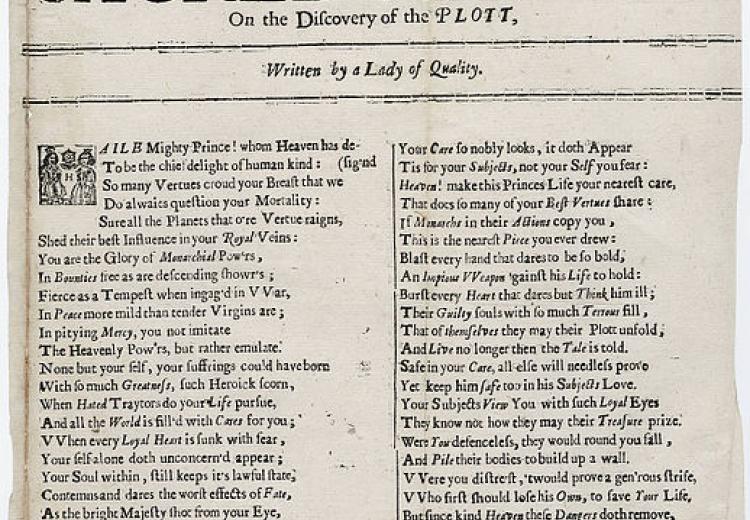 On the Discovery of the PLOTT,
Written by a Lady of Quality.
HAILE Mighty Prince! whom Heaven has de-
To be the chief delight of human kind: (sig'nd
So many Vertues croud your Breast that we
Do alwaies question your Mortality:
Sure all the Planets that o're Vertue raigns,
Shed their best Influence in your Royal Veins:
You are the Glory of Monarchial Pow'rs,
In Bounties free as are descending show'rs;
Fierce as a Tempest when ingag'd in VVar,
In Peace more mild than tender Virgins are;
In pitying Mercy, you not imitate
The Heavenly Pow'rs, but rather emulate.
None but your self, your suffrings could have born
With so much Greatness, such Heroick scorn,
When Hated Traytors do your Life pursue,
And all the World is fill'd with Cares for you;
VVhen every Loyal Heart is sunk with fear,
Your self alone doth unconcern'd appear;
Your Soul within, still keeps it's lawful state,
Contemns and dares the worst effects of Fate,
As the bright Majesty shot from your Eye,
Your Care so nobly looks, it doth Appear
Tis for your Subjects, not your Self you fear:
Heaven! make this Princes Life your nearest care,
That does so many of your Best Vertues share:
If Monarchs in their Actions copy you,
This is the nearest Piece you ever drew:
Blast every hand that dares to be so bold,
An Impious VVeapon 'gainst his Life to hold:
Burst every Heart that dares but Think him ill;
Their Guilty souls with so much Terrour fill,
That of themselves they may their Plott unfold,
And Live no longer then the Tale is told.
Safe in your Care, all else will needless prove
Yet keep him safe too in his Subjects Love.
Your Subjects View You with such Loyal Eyes
They know not how they may their Treasure prize.
Were You defenceless, they would round you fall,
And Pile their bodies to build up a wall.
VVere you distrest, 'twould prove a gen'rous strife,
VVho first should lose his Own, to save Your Life,
But since kind Heaven these Dangers doth remove,